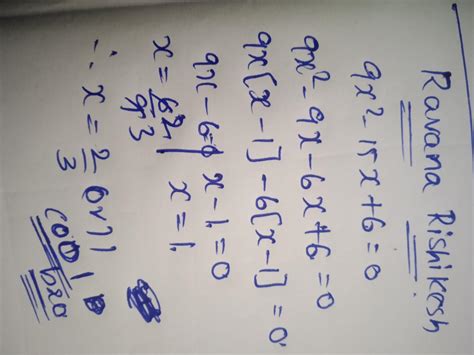 Ravana Rishikesh
9x²-15x+6=0
9x²-9x-6x+6=0
9x[x-1]-6[x-1]=0
9x-6=0 | x-1=0
x=6 2/9 3 | x=1
∴ x=2/3 (or) 1